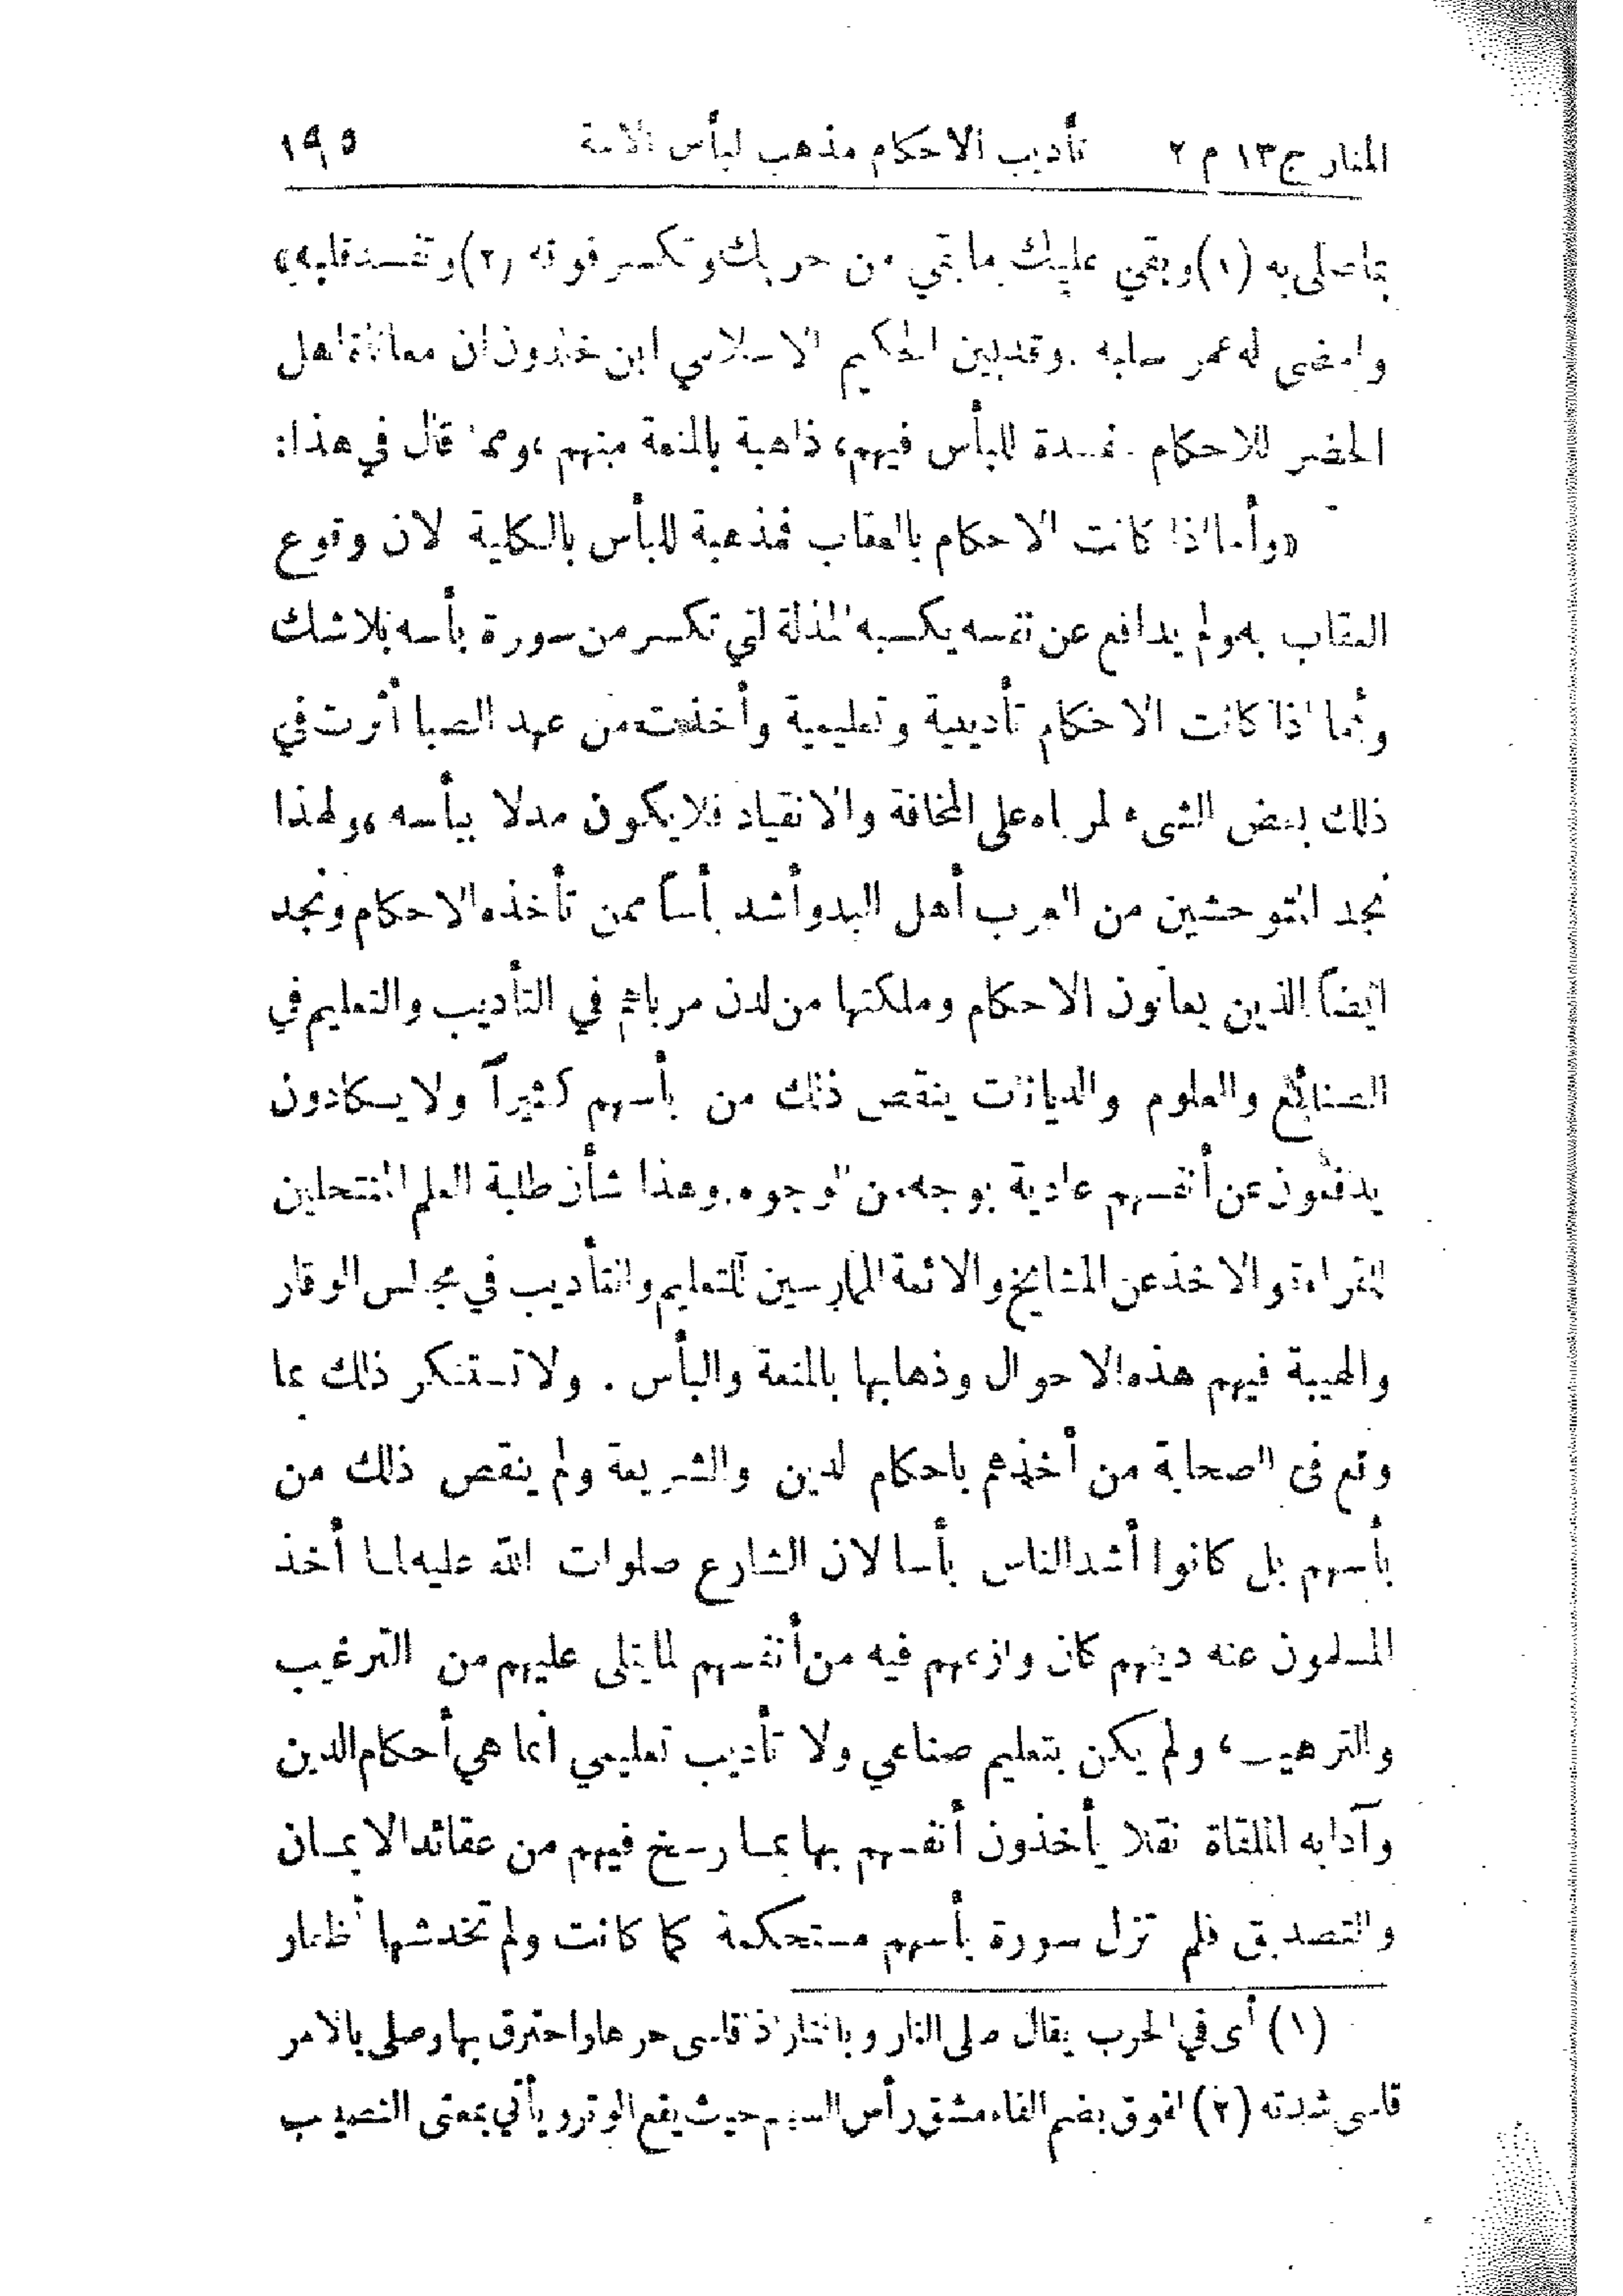 المنار ج١٣ م ٢ تأديب الاحكام مذهب لبأس الامة ١٩٥
بماصلى به (١) وبقي عليك ما بقي من حربك وتكسر فوقه (٢) وتفسد قلبه»
وامضى له عمر سلبه . وقد بين الحكيم الاسلامي ابن خلدون ان معاناة اهل
الحضر للاحكام مفسدة للبأس فيهم، ذاهبة بالمنعة منهم، ومما قال في هذا:
«وأما اذا كانت الاحكام بالعقاب فمذهبة للبأس بالكلية لان وقوع
العقاب به ولم يدافع عن نفسه يكسبه المذلة التي تكسر من سورة بأسه بلا شك
وأما اذا كانت الاحكام تأديبية وتعليمية وأخذت من عهد الصبا أثرت في
ذلك بعض الشيء لمرباه على المخافة والانقياد فلا يكون مدلا ببأسه، ولهذا
نجد المتوحشين من العرب أهل البدو أشد بأساً ممن تأخذه الاحكام ونجد
ايضاً الذين يعانون الاحكام وملكتها من لدن مرباهم في التأديب والتعليم في
الصنائع والعلوم والديانات ينقص ذلك من بأسهم كثيراً ولا يكادون
يدفعون عن أنفسهم عادية بوجه من الوجوه. وهذا شأن طلبة العلم المنتحلين
للقراءة والاخذ عن المشايخ والائمة الممارسين للتعليم والتأديب في مجالس الوقار
والهيبة فيهم هذه الاحوال وذهابها بالمنعة والبأس . ولا تستنكر ذلك بما
وقع في الصحابة من أخذهم باحكام الدين والشريعة ولم ينقص ذلك من
بأسهم بل كانوا أشد الناس بأسا لان الشارع صلوات الله عليه لما أخذ
المسلمون عنه دينهم كان وازعهم فيه من أنفسهم لما يتلى عليهم من الترغيب
والترهيب، ولم يكن بتعليم صناعي ولا تأديب تعليمي انما هي أحكام الدين
وآدابه المتلقاة نقلا يأخذون أنفسهم بها بما رسخ فيهم من عقائد الايمان
والتصديق فلم تزل سورة بأسهم مستحكمة كما كانت ولم تخدشها أظفار
(١) أى في الحرب يقال صلى النار وبالنار اذا قاسى حرها واحترق بها وصلى بالامر
قاسى شدته (٢) الفوق بضم الفاء مشق رأس السهم حيث يقع الوتر ويأتي بمعنى النصيب